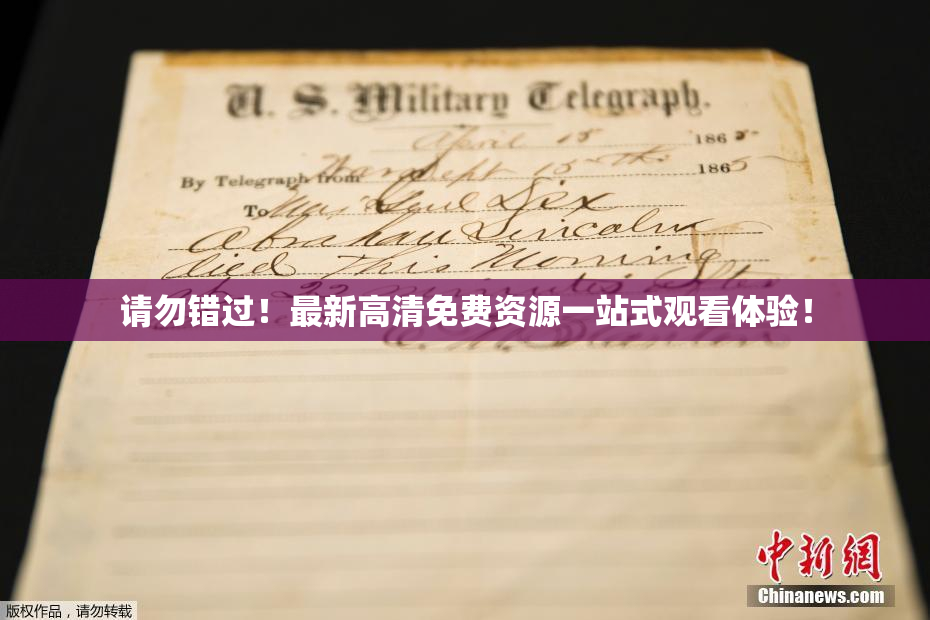 U. S. Military Telegraph.
April 15 1865
By Telegraph from War Dept 15th 1865
To Maj Genl Dix
Abraham Lincoln
died This Morning
at 22 minutes after
请勿错过！最新高清免费资源一站式观看体验！
E. M. Stanton
中新网
Chinanews.com
版权作品，请勿转载